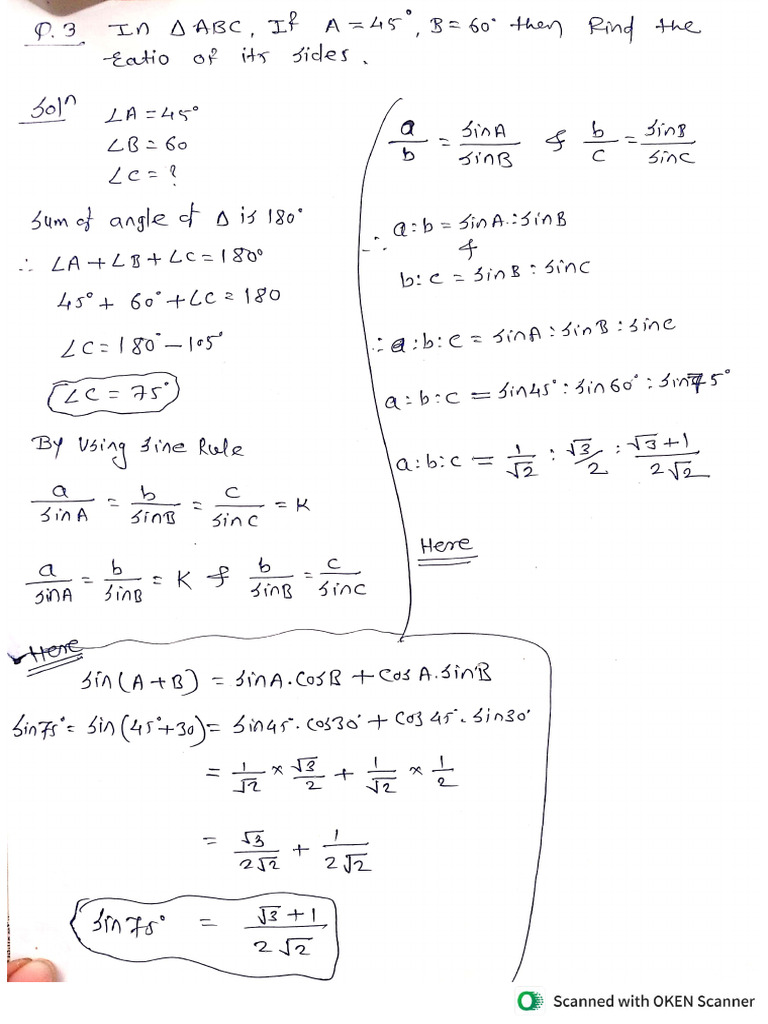 Q.3 In △ABC, If A = 45°, B = 60° then Find the
ratio of its sides.
Solⁿ
∠A = 45°
∠B = 60
∠C = ?
Sum of angle of △ is 180°
∴ ∠A + ∠B + ∠C = 180°
45° + 60° + ∠C = 180
∠C = 180° − 105°
∠C = 75°
By Using Sine Rule
a/sinA = b/sinB = c/sinC = K
a/sinA = b/sinB = K & b/sinB = c/sinC
a/b = sinA/sinB & b/c = sinB/sinC
∴ a:b = sinA : sinB
&
b:c = sinB : sinC
∴ a:b:c = sinA : sinB : sinC
a:b:c = sin45° : sin60° : sin75°
a:b:c = 1/√2 : √3/2 : (√3+1)/(2√2)
Here
Here
sin(A+B) = sinA.cosB + cosA.sinB
sin75° = sin(45°+30) = sin45°.cos30° + cos45°.sin30°
= 1/√2 × √3/2 + 1/√2 × 1/2
= √3/(2√2) + 1/(2√2)
sin75° = (√3+1)/(2√2)
Scanned with OKEN Scanner